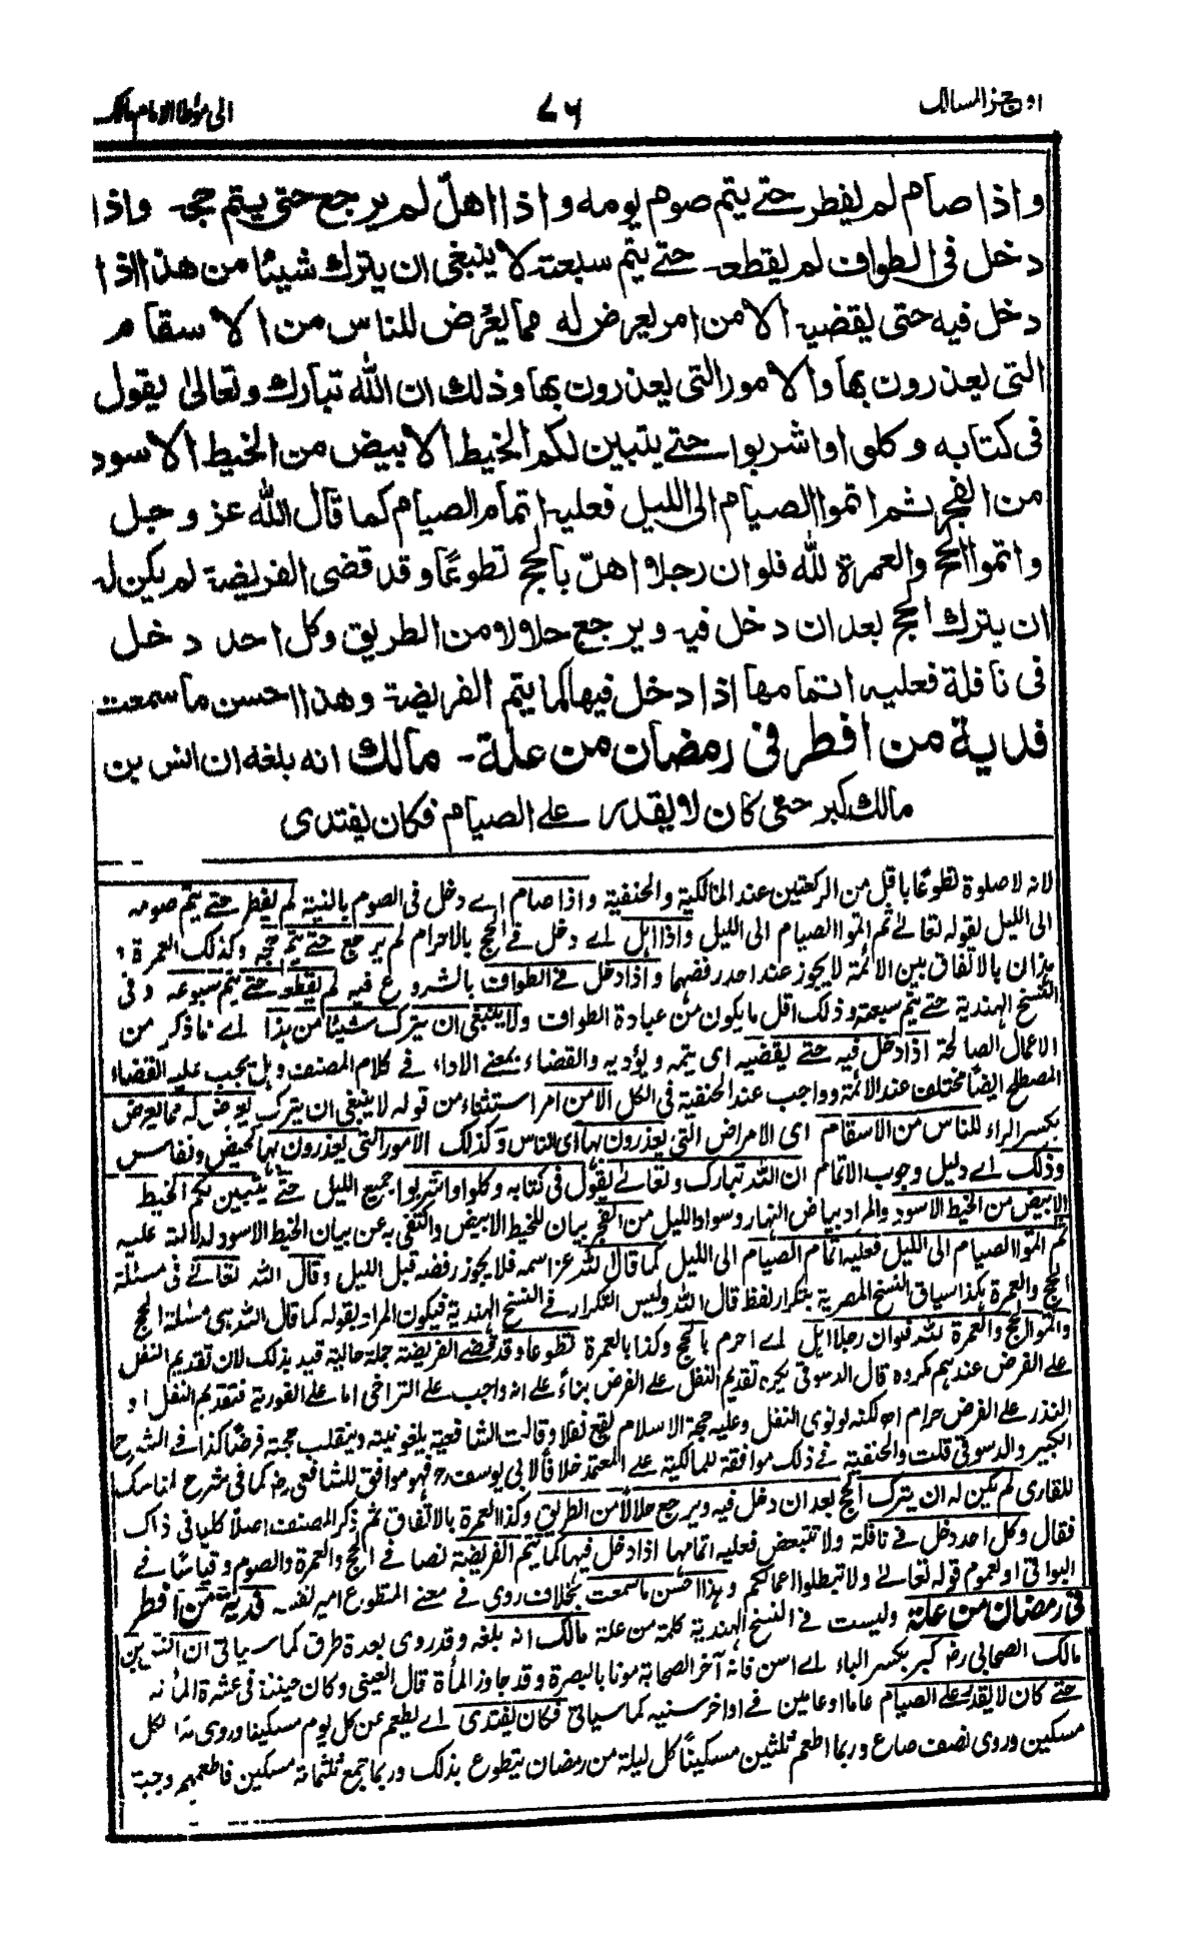 اوجز المسالك
٧٦
الى مؤطا الامام مالك
واذا صام لم يفطر حتے يتم صوم يومه واذا اهلّ لم يرجع حتى يتم حجہ واذا
دخل فى الطواف لم يقطعہ حتے يتم سبعتہ لا ينبغى ان يترك شيئًا من هذا اذا
دخل فيه حتى يقضيہ الا من امر يعرض له مما يعرُض للناس من الاسقام
التى يعذرون بها والامور التى يعذرون بها وذلك ان الله تبارك وتعالىٰ يقول
فى كتابه وكلوا واشربوا حتے يتبين لكم الخيط الابيض من الخيط الاسود
من الفجر ثم اتموا الصيام الى الليل فعليہ اتمام الصيام كما قال الله عز وجل
واتموا الحج والعمرة لله فلو ان رجلا اهلّ بالحج تطوعًا وقد قضى الفريضة لم يكن لہ
ان يترك الحج بعد ان دخل فيہ ويرجع حلالا من الطريق وكل احد دخل
فى نافلة فعليہ اتمامها اذا دخل فيها كما يتم الفريضة وهذا احسن ما سمعت
فدية من افطر فى رمضان من علة۔ مالك انه بلغه ان انس بن
مالك كبر حتى كان لا يقدر علے الصيام فكان يفتدى
لانہ لا صلوة تطوعًا باقل من الركعتين عند المالكية والحنفية واذا صام اے دخل فى الصوم بالنية لم يفطر حتے يتم صومہ
الى الليل لقولہ تعالے ثم اتموا الصيام الى الليل واذا اہل اے دخل فے الحج بالاحرام لم يرجع حتے يتم حجہ وكذلك العمرة و
ہذان بالاتفاق بين الائمة لا يجوز عند احد رفضہما واذا دخل فے الطواف بالشروع فيہ لم يقطعہ حتے يتم سبوعہ وفى
النسخ الہندية حتے يتم سبعتہ وذلك اقل ما يكون من عبادة الطواف ولا ينبغى ان يترك شيئًا من ہذا اے ما ذكر من
الاعمال الصالحة اذا دخل فيہ حتے يقضيہ اى يتمہ ويؤديہ والقضاء بمعنے الاداء فے كلام المصنف وہل يجب عليہ القضاء
المصطلح ايضًا مختلف عند الائمة وواجب عند الحنفية فى الكل الا من امر استثناء من قولہ لا ينبغى ان يترك يعرض لہ مما يعرض
بكسر الراء للناس من الاسقام اى الامراض التى يعذرون بہا اى الناس وكذلك الامور التى يعذرون بہا كحيض ونفاس
وذلك اے دليل وجوب الاتمام ان اللہ تبارك وتعالے يقول فى كتابہ وكلوا واشربوا جميع الليل حتے يتبين لكم الخيط
الابيض من الخيط الاسود والمراد بياض النہار وسواد الليل من الفجر بيان للخيط الابيض واكتفى بہ عن بيان الخيط الاسود لدلالتہ عليہ
ثم اتموا الصيام الى الليل فعليہ اتمام الصيام الى الليل كما قال اللہ عز اسمہ فلا يجوز رفضہ قبل الليل وقال اللہ تعالے فى مسئلة
الحج والعمرة ہكذا سياق النسخ المصرية بتكرار لفظ قال اللہ وليس التكرار فے النسخ الہندية فيكون المراد بقولہ كما قال اللہ ہى مسئلة الحج
واتموا الحج والعمرة للہ فلو ان رجلا اہل اے احرم بالحج وكذا بالعمرة تطوعا وقد قضے الفريضة جملة حالية قيد بذلك لان تقديم النفل
علے الفرض عندہم مكروہ قال الدسوقى يكرہ تقديم النفل علے الفرض بناءً علے انہ واجب علے التراخى اما علے الفورية فتقديم النفل او
النذر علے الفرض حرام اھ لكنہ لو نوى النفل وعليہ حجة الاسلام يقع نفلا وقالت الشافعية يلغو نيتہ وينقلب حجتہ فرضًا كذا فے الشرح
الكبير والدسوقى قلت والحنفية فے ذلك موافقة للمالكية علے المعتمد خلافًا لابى يوسف رح فہو موافق للشافعى رض كما فى شرح المناسك
للقارى لم يكن لہ ان يترك الحج بعد ان دخل فيہ ويرجع حلالًا من الطريق وكذا العمرة بالاتفاق ثم ذكر المصنف اصلًا كليا فى ذاك
فقال وكل احد دخل فے نافلة ولا تتبعض فعليہ اتمامہا اذا دخل فيہا كما يتم الفريضة نصا فے الحج والعمرة والصوم وقياسًا فے
البواقى او لعموم قولہ تعالے ولا تبطلوا اعمالكم وہذا احسن ما سمعت بخلاف روى فے معنے المتطوع امير نفسہ فدية من افطر
فى رمضان من علة وليست فے النسخ الہندية كلمة من علة مالك انہ بلغہ وقد روى بعدة طرق كما سياتى ان انس بن
مالك الصحابى رض كبر بكسر الباء اے اسن فانہ آخر الصحابة موتا بالبصرة وقد جاوز المأة قال العينى وكان حينئذ فى عشرة المأة
حتے كان لا يقدر علے الصيام عاما او عامين فے اواخر سنيہ كما سياتى فكان يفتدى اے يطعم عن كل يوم مسكينا وروى مدًا لكل
مسكين وروى نصف صاع وربما اطعم ثلثين مسكينًا كل ليلة من رمضان يتطوع بذلك وربما جمع ثلثمائة مسكين فاطعمہم وجبة